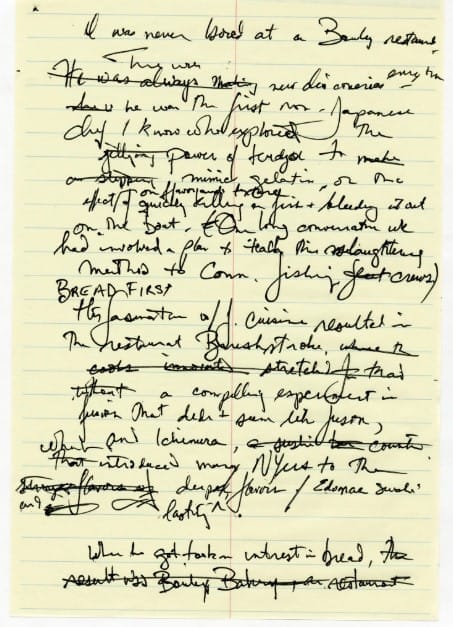 I was never bored at a Bouley restaurant
There were
He was always making new discoveries every time
he was the first non-Japanese
chef I know who explored the
gelling power of kudzu to make
a mimic gelatin, or the
effect on flavor and texture
of quickly killing a fish + bleeding it out
on the boat. One long conversation we
had involved a plan to teach this slaughtering
method to Conn. fishing fleet crews)
BREAD FIRST
His fascination w/ J. cuisine resulted in
the restaurant Brushstroke, where the
stretched
a compelling experiment in
fusion that didn't seem like fusion,
and Ichimura, a sushi bar
that introduced many NYers to the
strange flavors of deeper flavors / Edomae sushi
and
When he got
interest in bread, the
result was Bouley Bakery, a restaurant